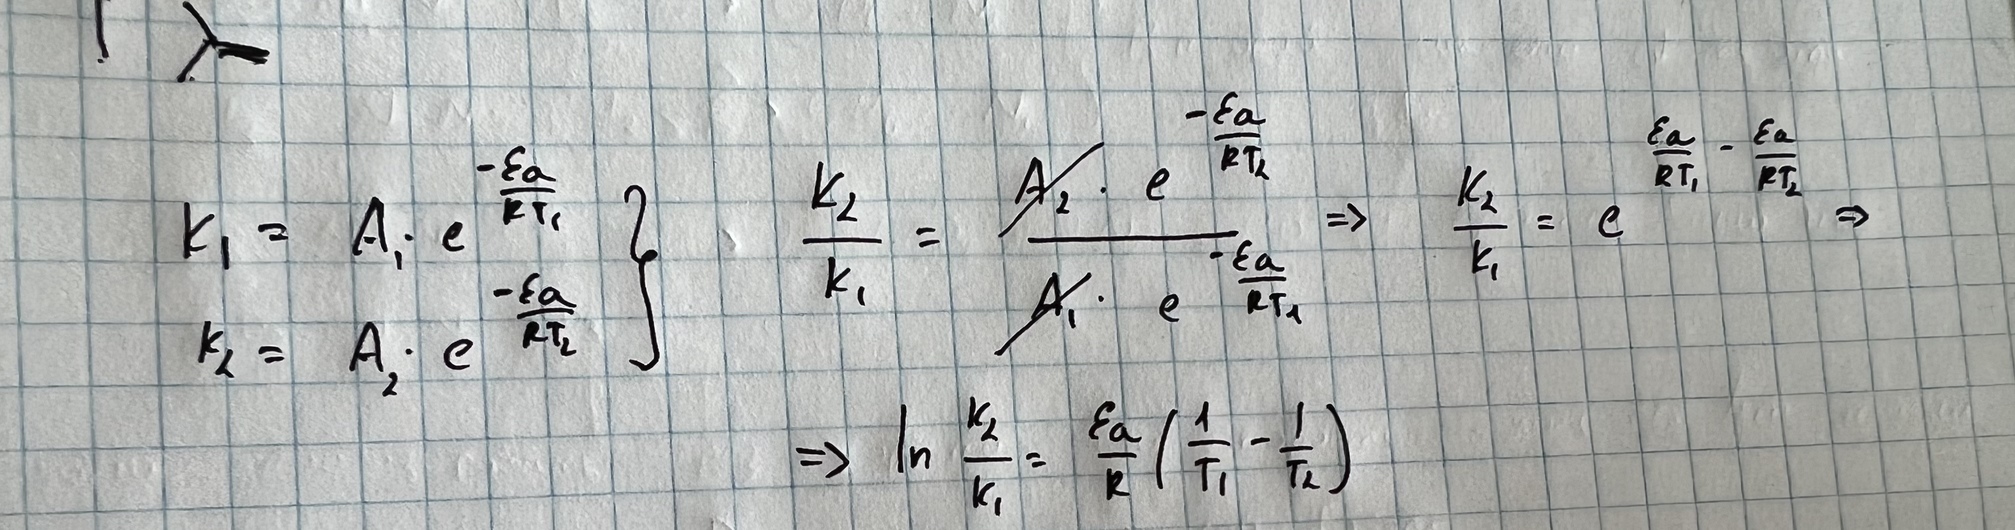 K₁ = A₁ · e^(-Ea/RT₁)
K₂ = A₂ · e^(-Ea/RT₂)
K₂/K₁ = A₂ · e^(-Ea/RT₂) / A₁ · e^(-Ea/RT₁) => K₂/K₁ = e^(Ea/RT₁ - Ea/RT₂) =>
=> ln K₂/K₁ = Ea/R (1/T₁ - 1/T₂)